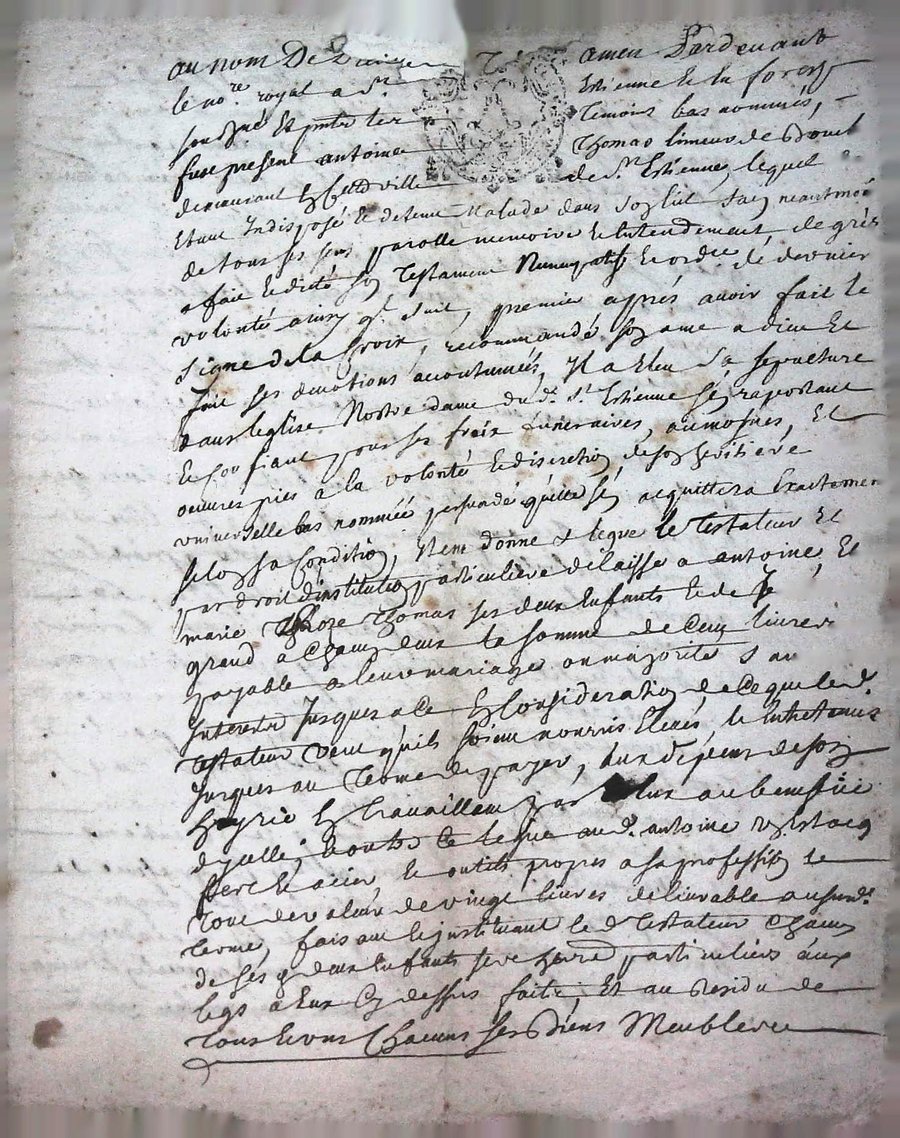 au nom De Dieu Amen Pardevant
le no.re royal a S.t Estienne de la forest
sousigné Et p[...]
temoins bas nommés,
fust present antoine Thomas limeur de Bouch
demeurant [...] de S.t Estienne, lequel
Etant Indisposé et detenu Malade dans son lit sain neantmoins
de tous ses sens parolle memoire et entendement de gré
a fait et dicté son Testament Nuncupatif et ordce de derniere
volonté ainsy q.l suit, premier aprés avoir fait le
Signe de la Croix, recommandé son ame a dieu Et
fait ses devotions accoutumées, Il a Eleu Sa sepulture
dans leglise Nostre dame du d. S.t Estienne s'en raportant
Et confiant pour ses fraix funeraires, aumosnes, Et
oeuvres pies a la volonté et discretion de son heritiere
universelle bas nommée persuadé qu'elle s'en acquittera Exactemen
selon sa Condition, Item donne & legue le Testateur Et
par droit d'institution particuliere délaisse a antoine, Et
marie Thomas ses deux Enfants et de
a chacun deux la somme de Cent livres
payable a leur mariage ou majorité San
Interest Jusques a ce En Consideration de Ce que le d.
Testateur Veut qu'ils soient nourris Elevés, et Entretenus
Jusques au Terme de payer, aux dépens de son
hoyrie En Travaillant par Eux au beneffice
dycelle, outre ce legue au d. antoine
fert et acier, et outils propres a sa profession le
tout de valeur de vingt livres delivrable au susd.
Terme, faisant et instituant le d. Testateur Chacun
de ses d. deux Enfants ses heres particuliers aux
legs a Eux Cy dessus faits, Et au Residu de
Tous Et Uns Chacuns ses Biens Meubles